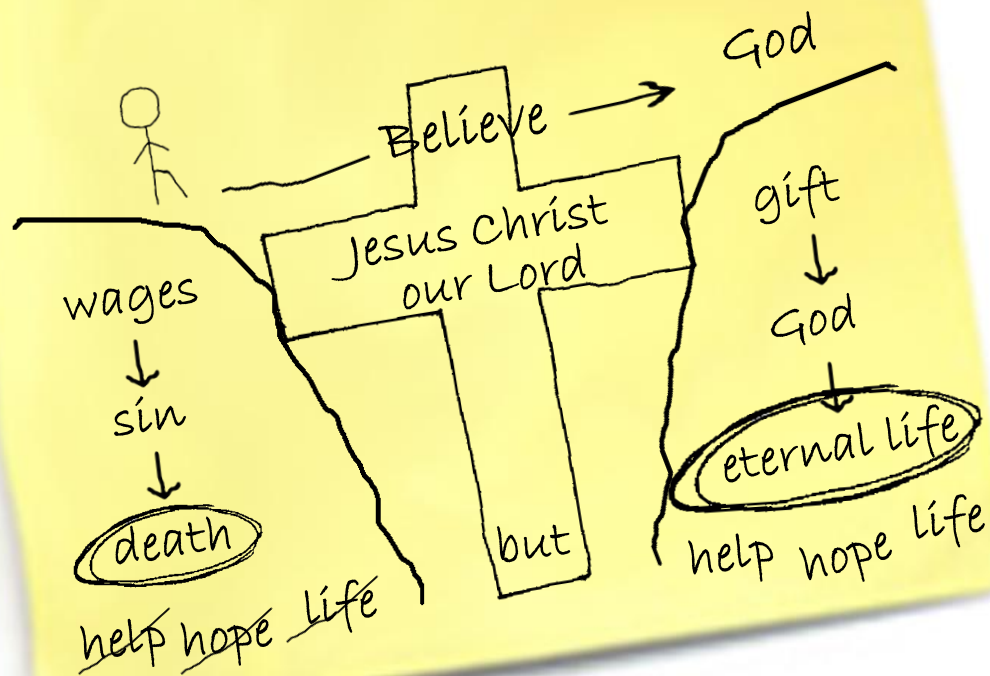 God
Believe
Jesus Christ
our Lord
wages
sin
death
help hope life
but
gift
God
eternal life
help hope life